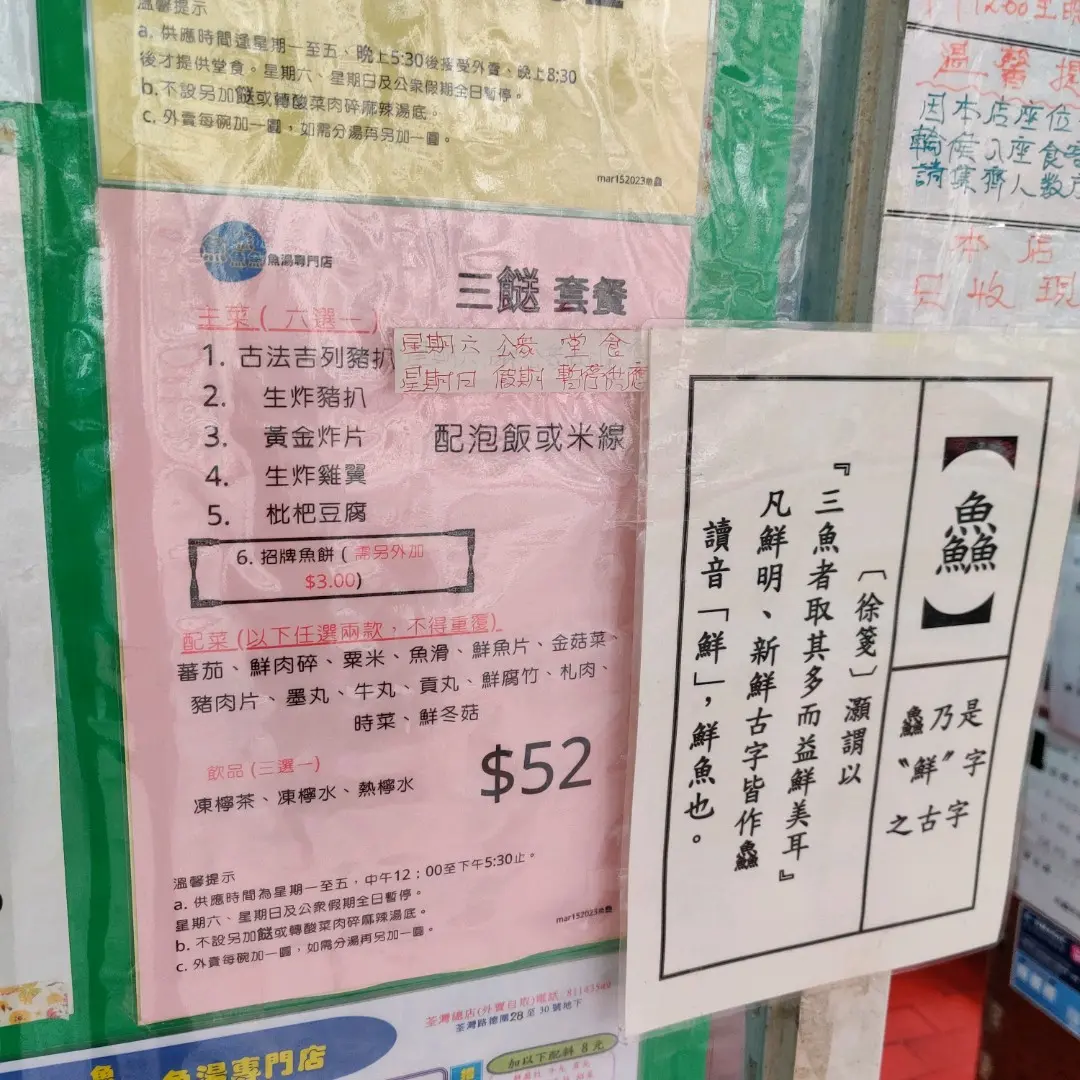 溫馨提示
a. 供應時間逢星期一至五、晚上5:30後接受外賣、晚上8:30
後才提供堂食。星期六、星期日及公眾假期全日暫停。
b.不設另加餸或轉酸菜肉碎麻辣湯底。
c. 外賣每碗加一圓，如需分湯再另加一圓。
mar152023魚鱻
魚湯專門店
三餸 套餐
主菜 ( 六選一 )
星期六 公眾 堂食
星期日 假期 暫停供應
1. 古法吉列豬扒
2. 生炸豬扒
3. 黃金炸片
4. 生炸雞翼
5. 枇杷豆腐
配泡飯或米線
6. 招牌魚餅 ( 需另外加
$3.00)
配菜 (以下任選兩款，不得重覆)
蕃茄、鮮肉碎、粟米、魚滑、鮮魚片、金菇菜、
豬肉片、墨丸、牛丸、貢丸、鮮腐竹、札肉、
時菜、鮮冬菇
飲品 (三選一)
凍檸茶、凍檸水、熱檸水
$52
溫馨提示
a. 供應時間為星期一至五，中午12：00至下午5:30止。
星期六、星期日及公眾假期全日暫停。
b. 不設另加餸或轉酸菜肉碎麻辣湯底。
c. 外賣每碗加一圓，如需分湯再另加一圓。
mar152023魚鱻
【鱻】
鱻乃是
“鮮”字
之古字
〔徐箋〕灝謂以
『三魚者取其多而益鮮美耳』
凡鮮明、新鮮古字皆作鱻
讀音「鮮」，鮮魚也。
溫馨提
因本店座位
輪候入座食客
請集齊人數
本店
只收現
荃灣總店(外賣自取)電話
荃灣路德圍28至30號地下
魚湯專門店
加以下配料 8 元